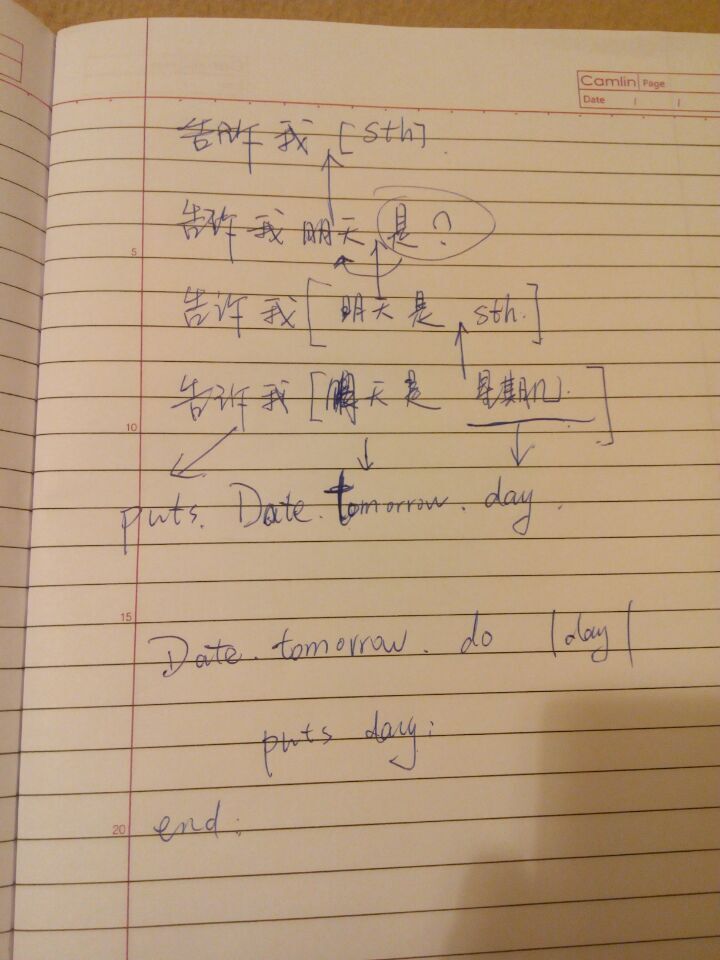 Camlin Page
Date / /
告诉我 [sth].
告诉我 明天 是?
5
告诉我 [明天是 sth.]
告诉我 [明天是 星期几.]
10
puts. Date.tomorrow.day.
15
Date.tomorrow. do |day|
puts day;
20
end;